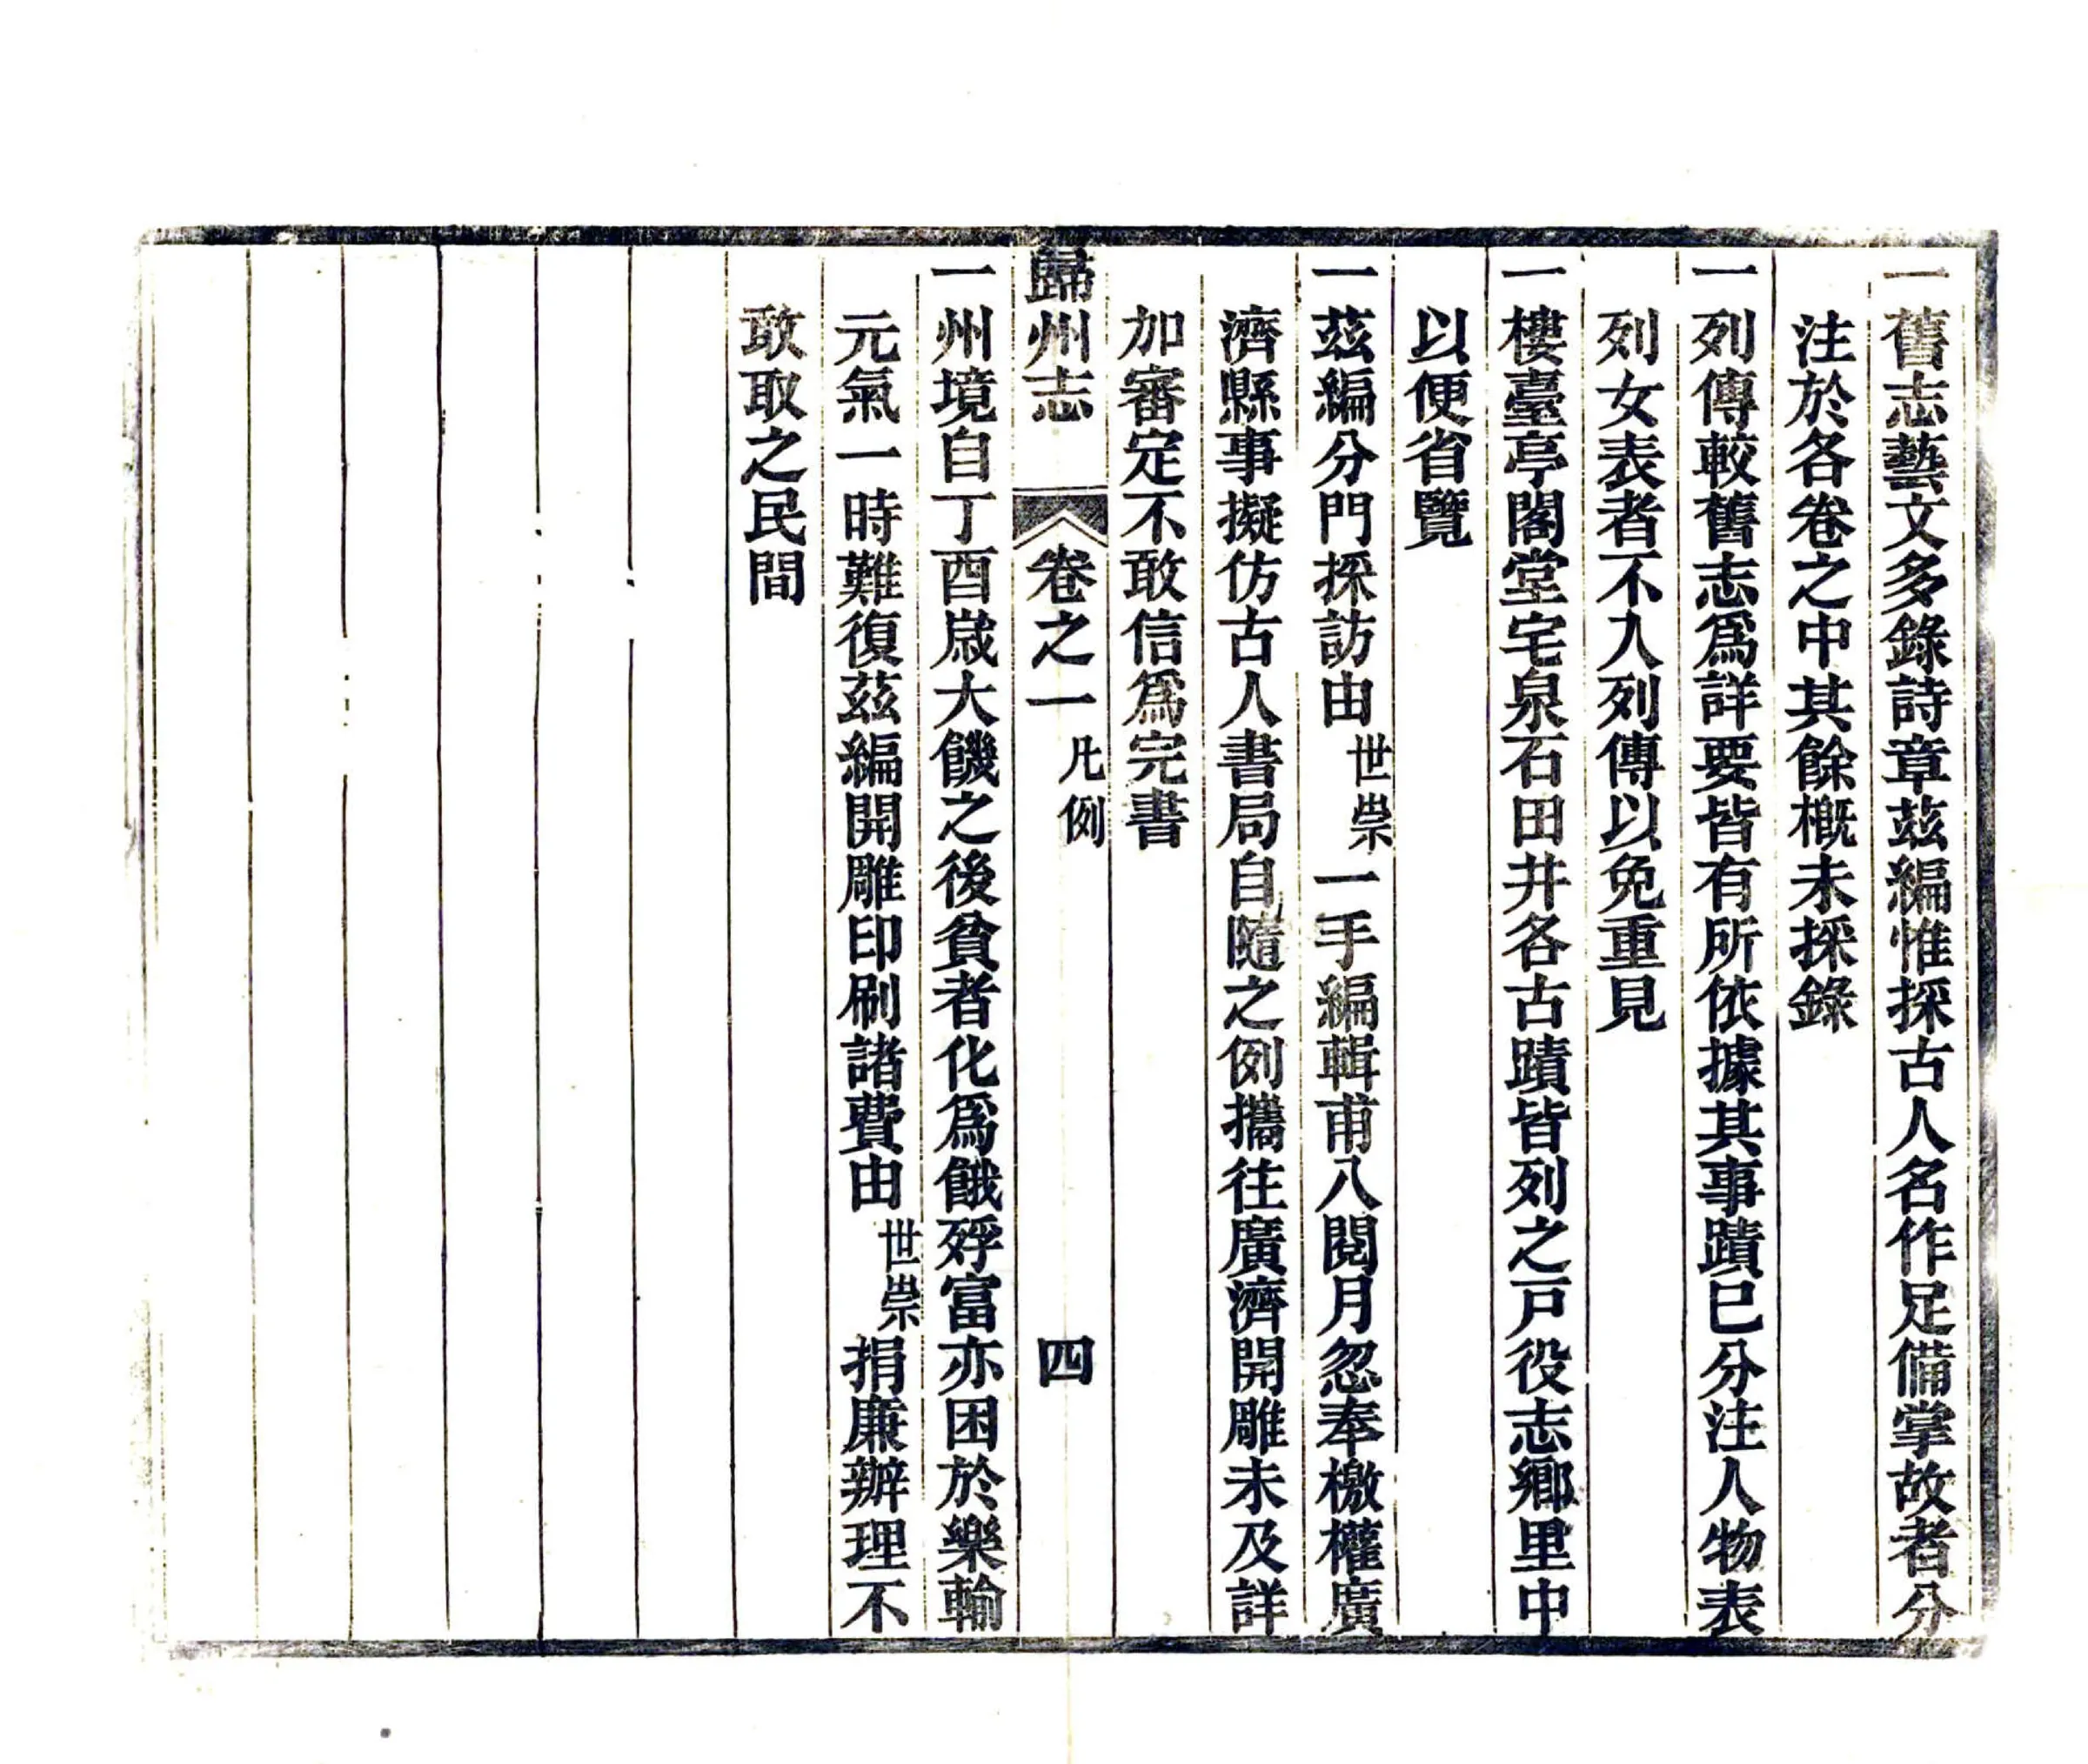 一舊志藝文多錄詩章茲編惟採古人名作足備掌故者分
注於各卷之中其餘槪未採錄
一列傳較舊志爲詳要皆有所依據其事蹟已分注人物表
列女表者不入列傳以免重見
一樓臺亭閣堂宅泉石田井各古蹟皆列之戸役志鄉里中
以便省覽
一茲編分門採訪由世崇一手編輯甫八閱月忽奉檄權廣
濟縣事擬仿古人書局自隨之例攜往廣濟開雕未及詳
加審定不敢信爲完書
歸州志 卷之一 凡例 四
一州境自丁酉嵗大饑之後貧者化爲餓殍富亦困於樂輸
元氣一時難復茲編開雕印刷諸費由世崇捐廉辦理不
敢取之民間